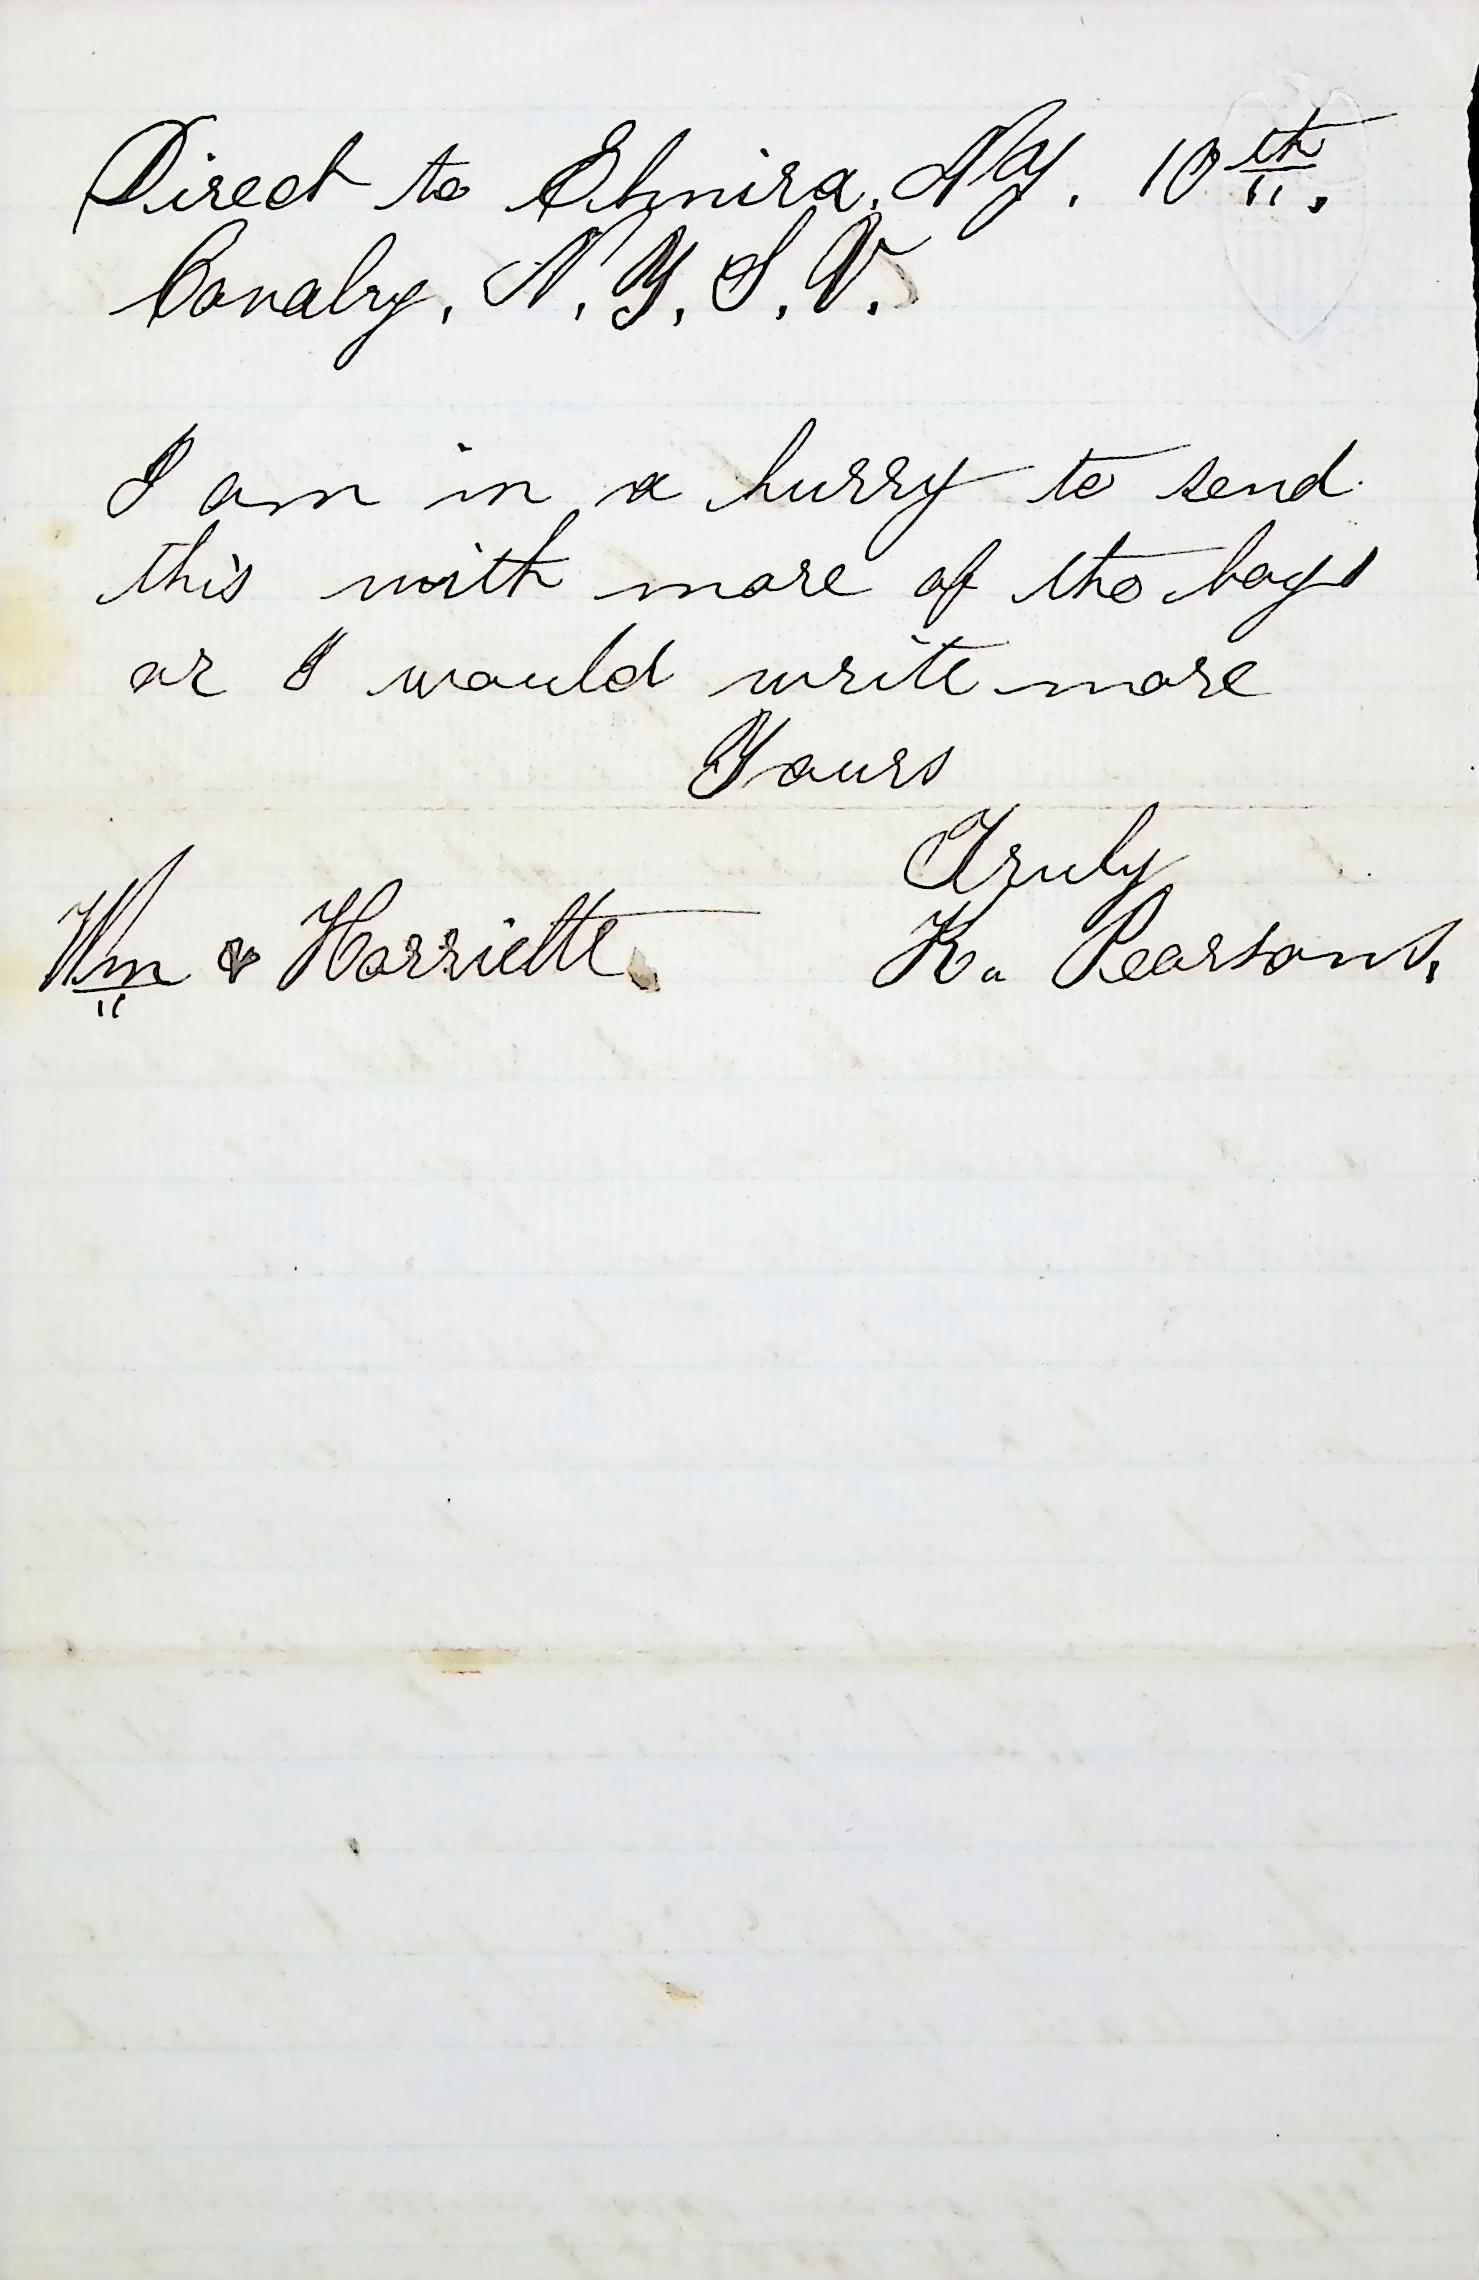 Direct to Elmira, NY. 10th.
Cavalry, N. Y. S. V.
I am in a hurry to send
this with more of the boys
or I would write more
Yours
Truly
Wm & Harriette. K. Pearsons.